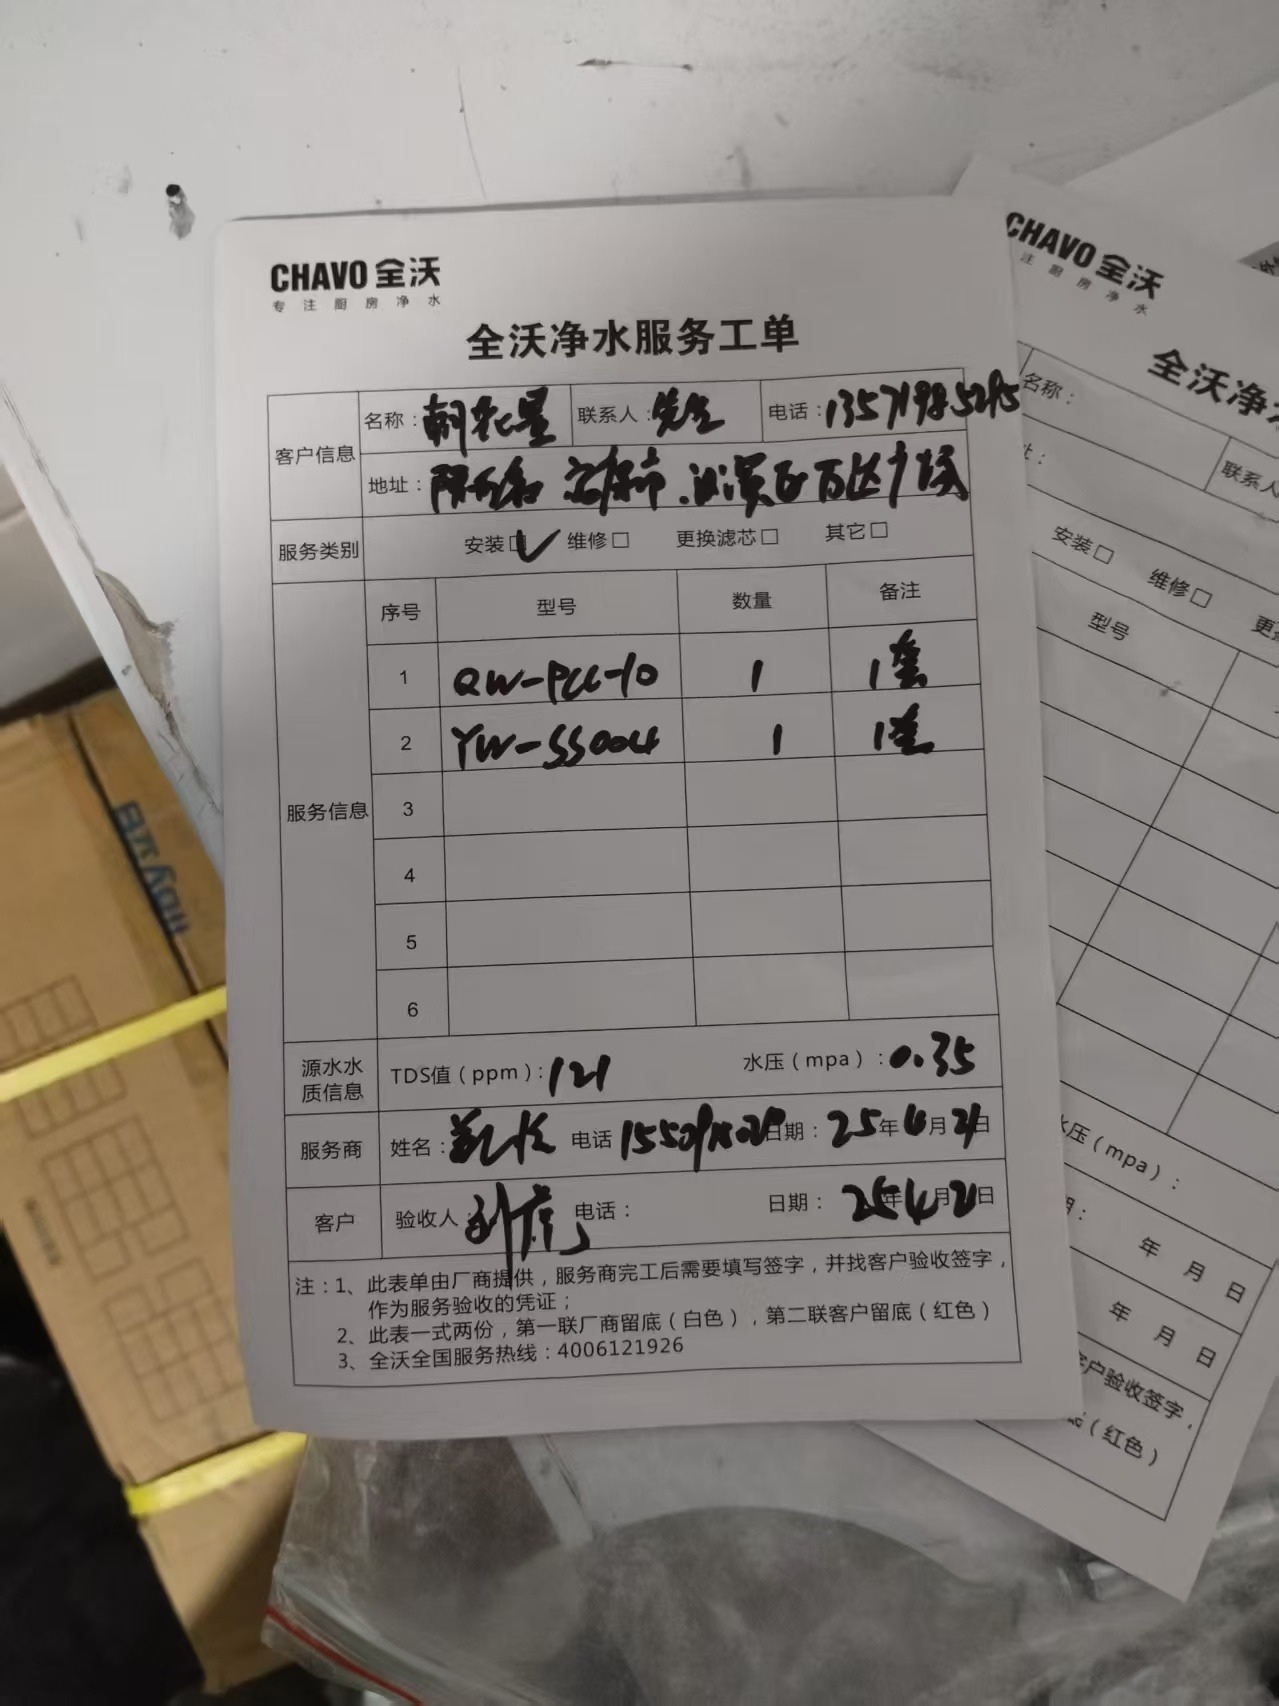 CHAVO 全沃
专注厨房净水
全沃净水服务工单
客户信息
名称: 联系人: 先生 电话:
地址: 万达广场
服务类别 安装□✓ 维修□ 更换滤芯□ 其它□
服务信息
序号 型号 数量 备注
1 QW-PCC-10 1 1套
2 YW-SS004 1 1套
3
4
5
6
源水水质信息 TDS值(ppm): 121 水压(mpa): 0.35
服务商 姓名: 电话 日期: 25年4月21日
客户 验收人: 电话: 日期: 25年4月21日
注:1、此表单由厂商提供,服务商完工后需要填写签字,并找客户验收签字,
作为服务验收的凭证;
2、此表一式两份,第一联厂商留底(白色),第二联客户留底(红色)
3、全沃全国服务热线:4006121926
CHAVO 全沃
注厨房净水
全沃净
名称:
址:
联系人
安装□ 维修□ 更
型号
水压(mpa):
期: 年 月 日
年 月 日
客户验收签字,
底(红色)